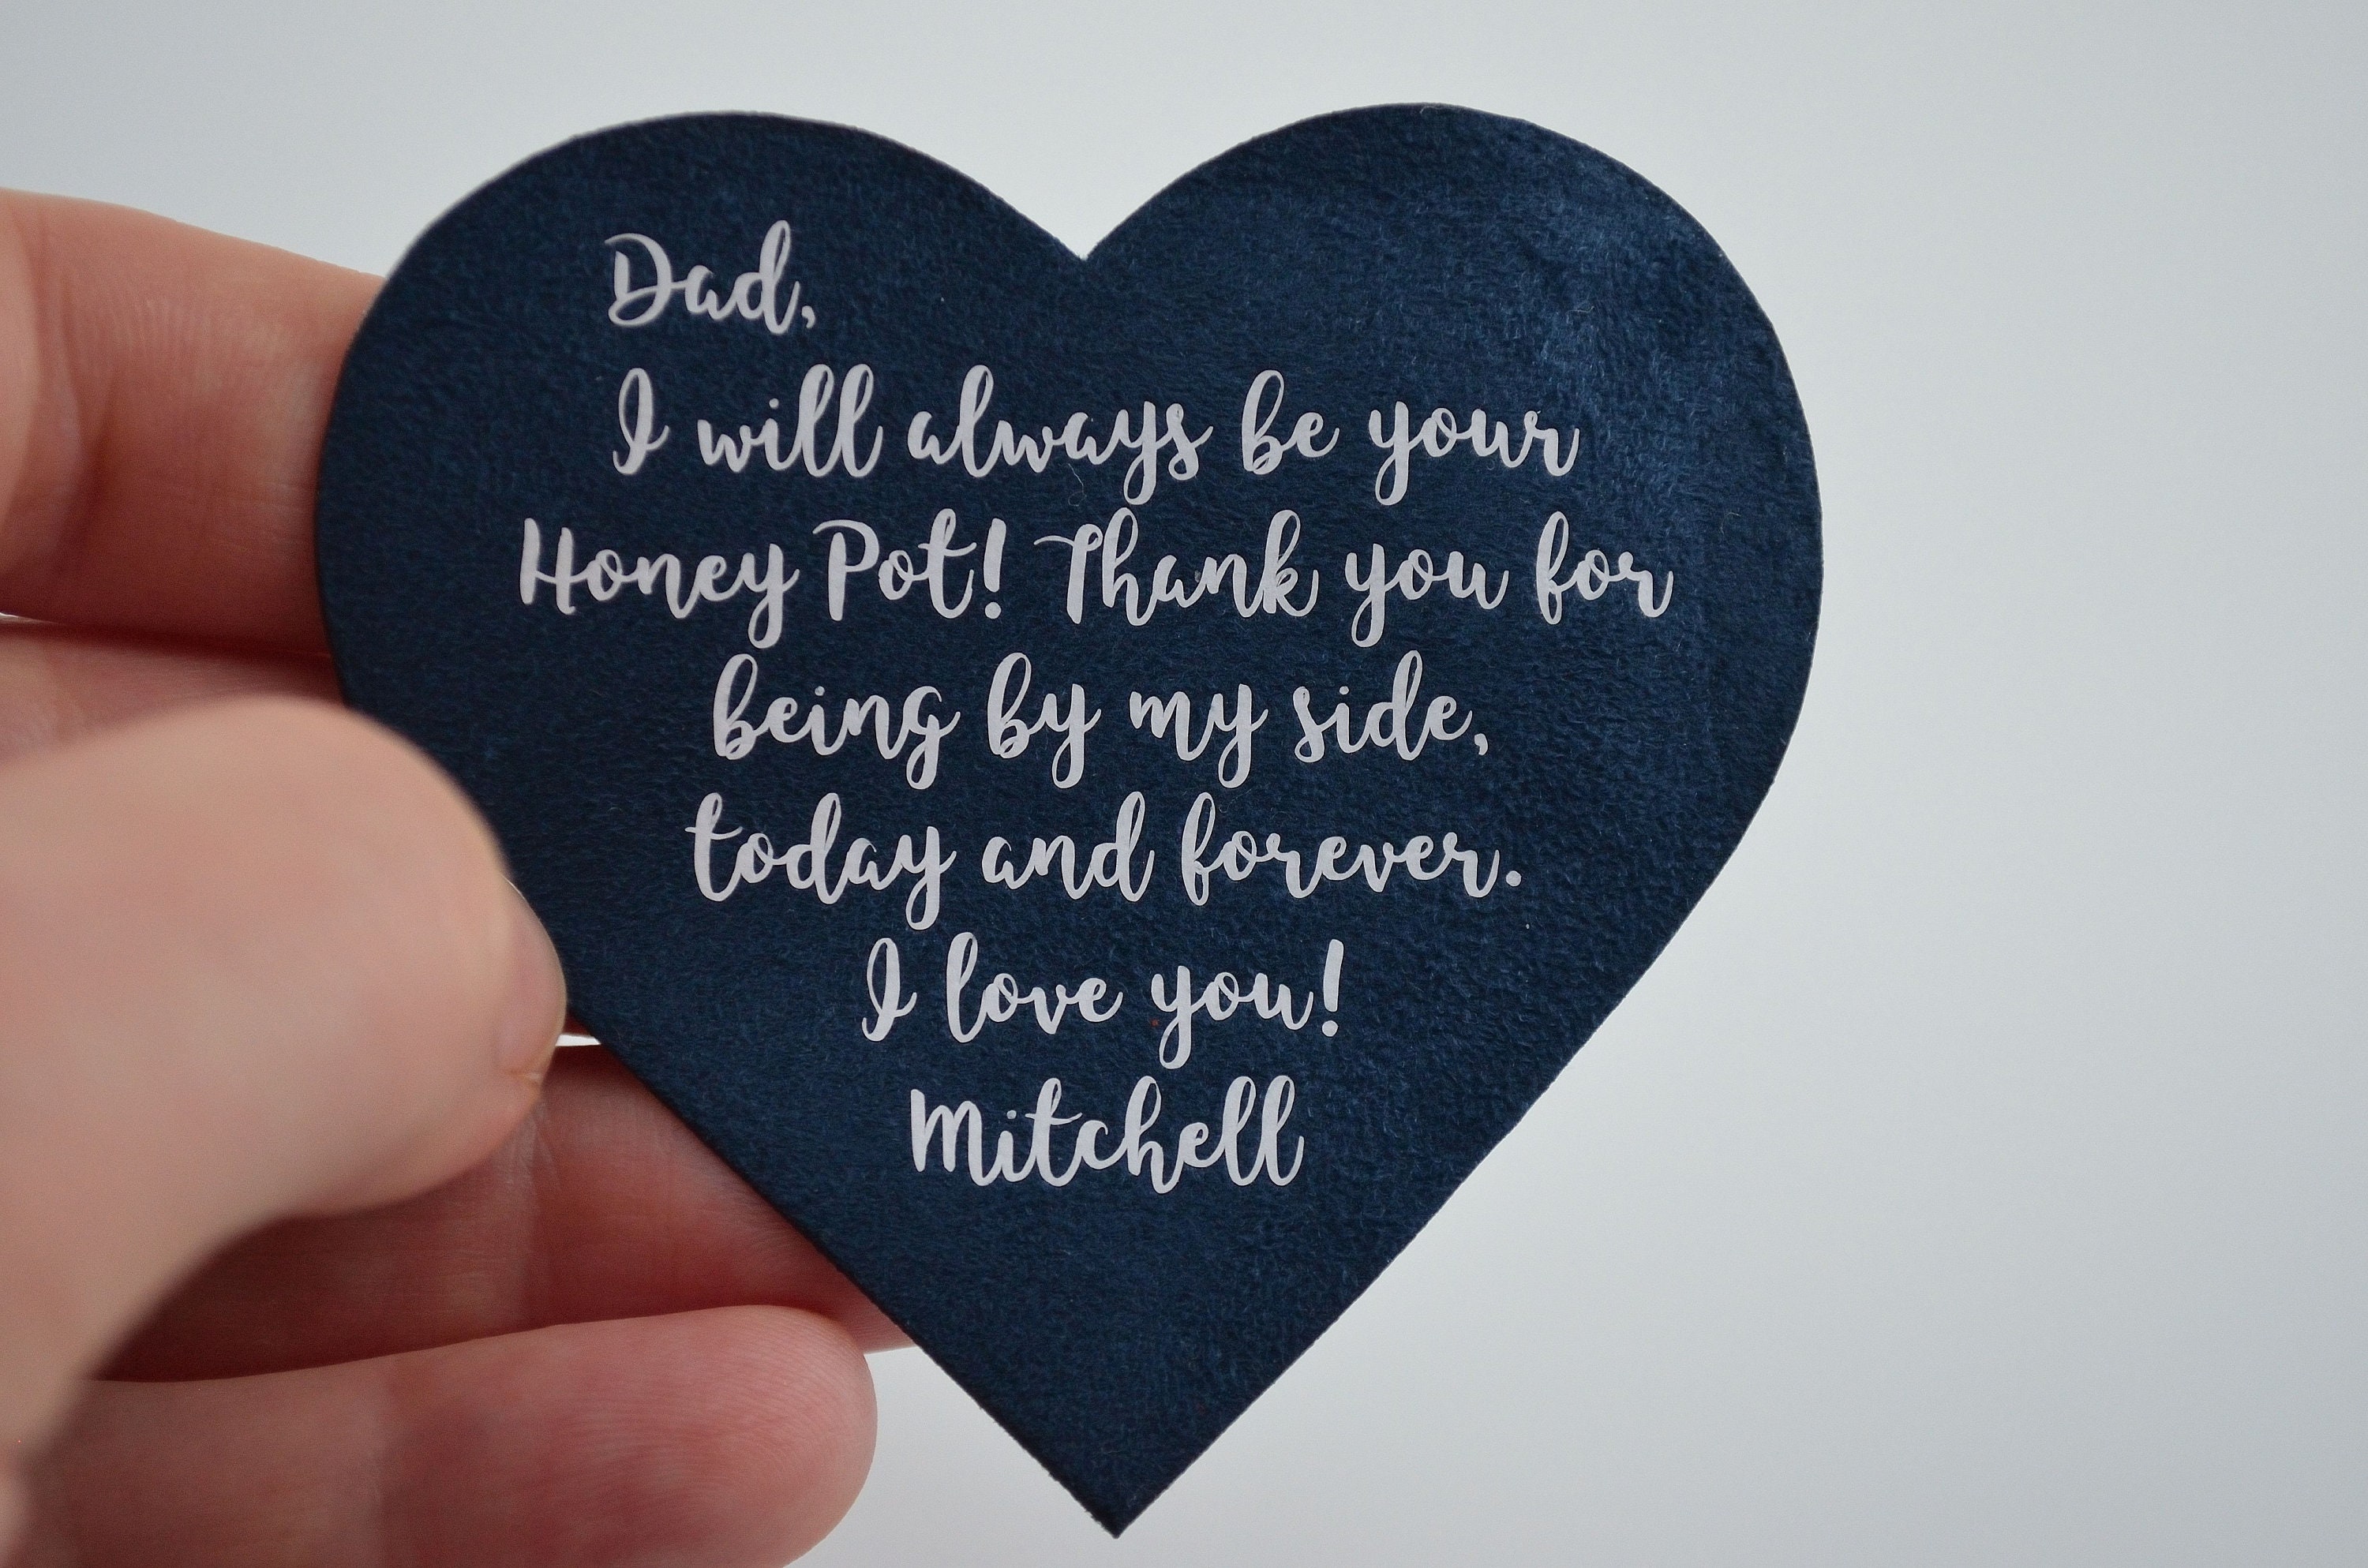 Dad,
I will always be your
Honey Pot! Thank you for
being by my side,
today and forever.
I love you!
Mitchell